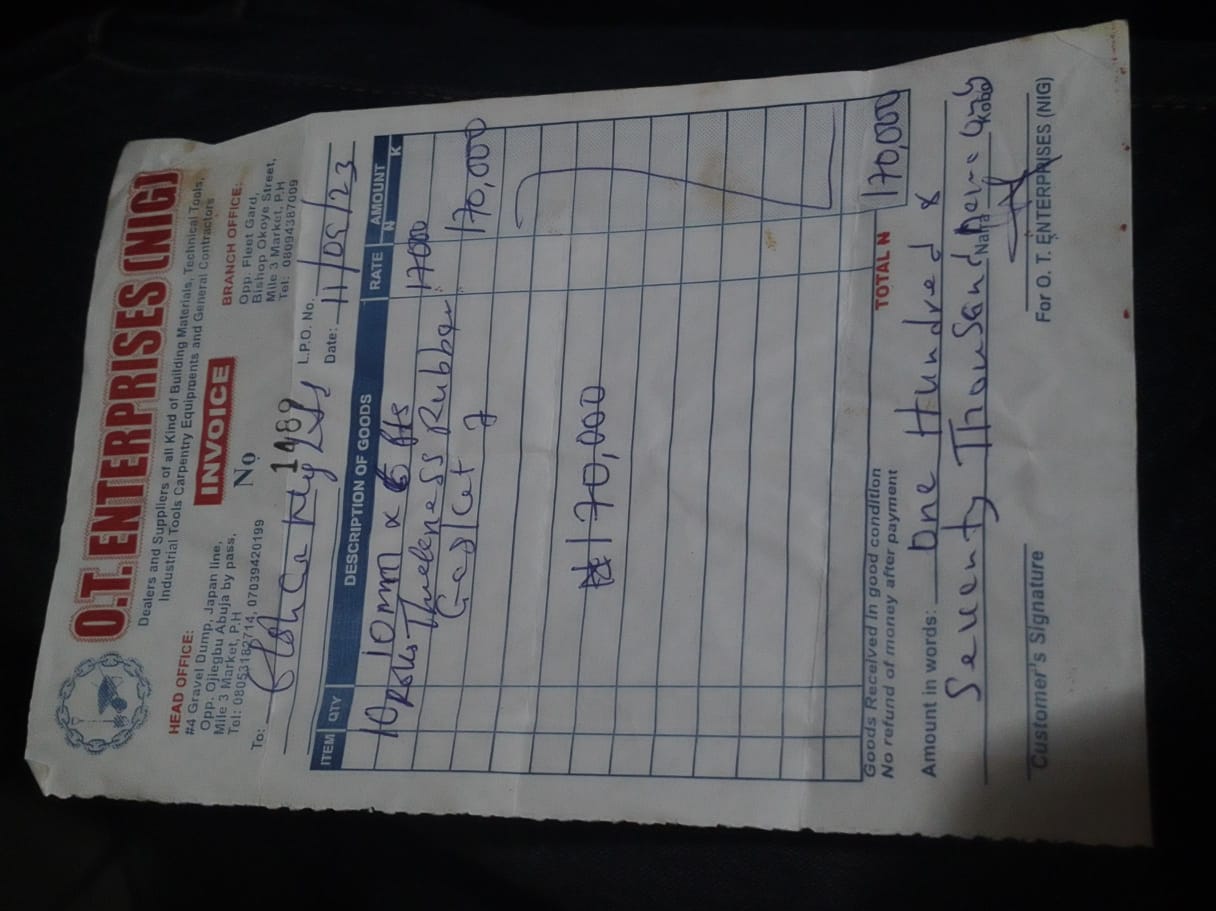 O.T. ENTERPRISES (NIG)
Dealers and Suppliers of all Kind of Building Materials, Technical Tools,
Industrial Tools Carpentry Equipments and General Contractors
HEAD OFFICE:
#4 Gravel Dump, Japan line,
Opp. Ojiegbu Abuja by pass,
Mile 3 Market, P.H
Tel: 08053182714, 07039420199
INVOICE
No 1489
BRANCH OFFICE:
Opp. Fleet Gard,
Bishop Okoye Street,
Mile 3 Market, P.H
Tel: 08094387099
To:
L.P.O. No.
Date: 11/05/23
ITEM QTY DESCRIPTION OF GOODS RATE AMOUNT
N K
10 10mm x 6 fts 17000
Rubber 170,000
Gasket
₦170,000
Goods Received in good condition
No refund of money after payment
TOTAL N 170,000
Amount in words: One Hundred &
Seventy Thousand Naira Only Kobo
Customer's Signature
For O. T. ENTERPRISES (NIG)